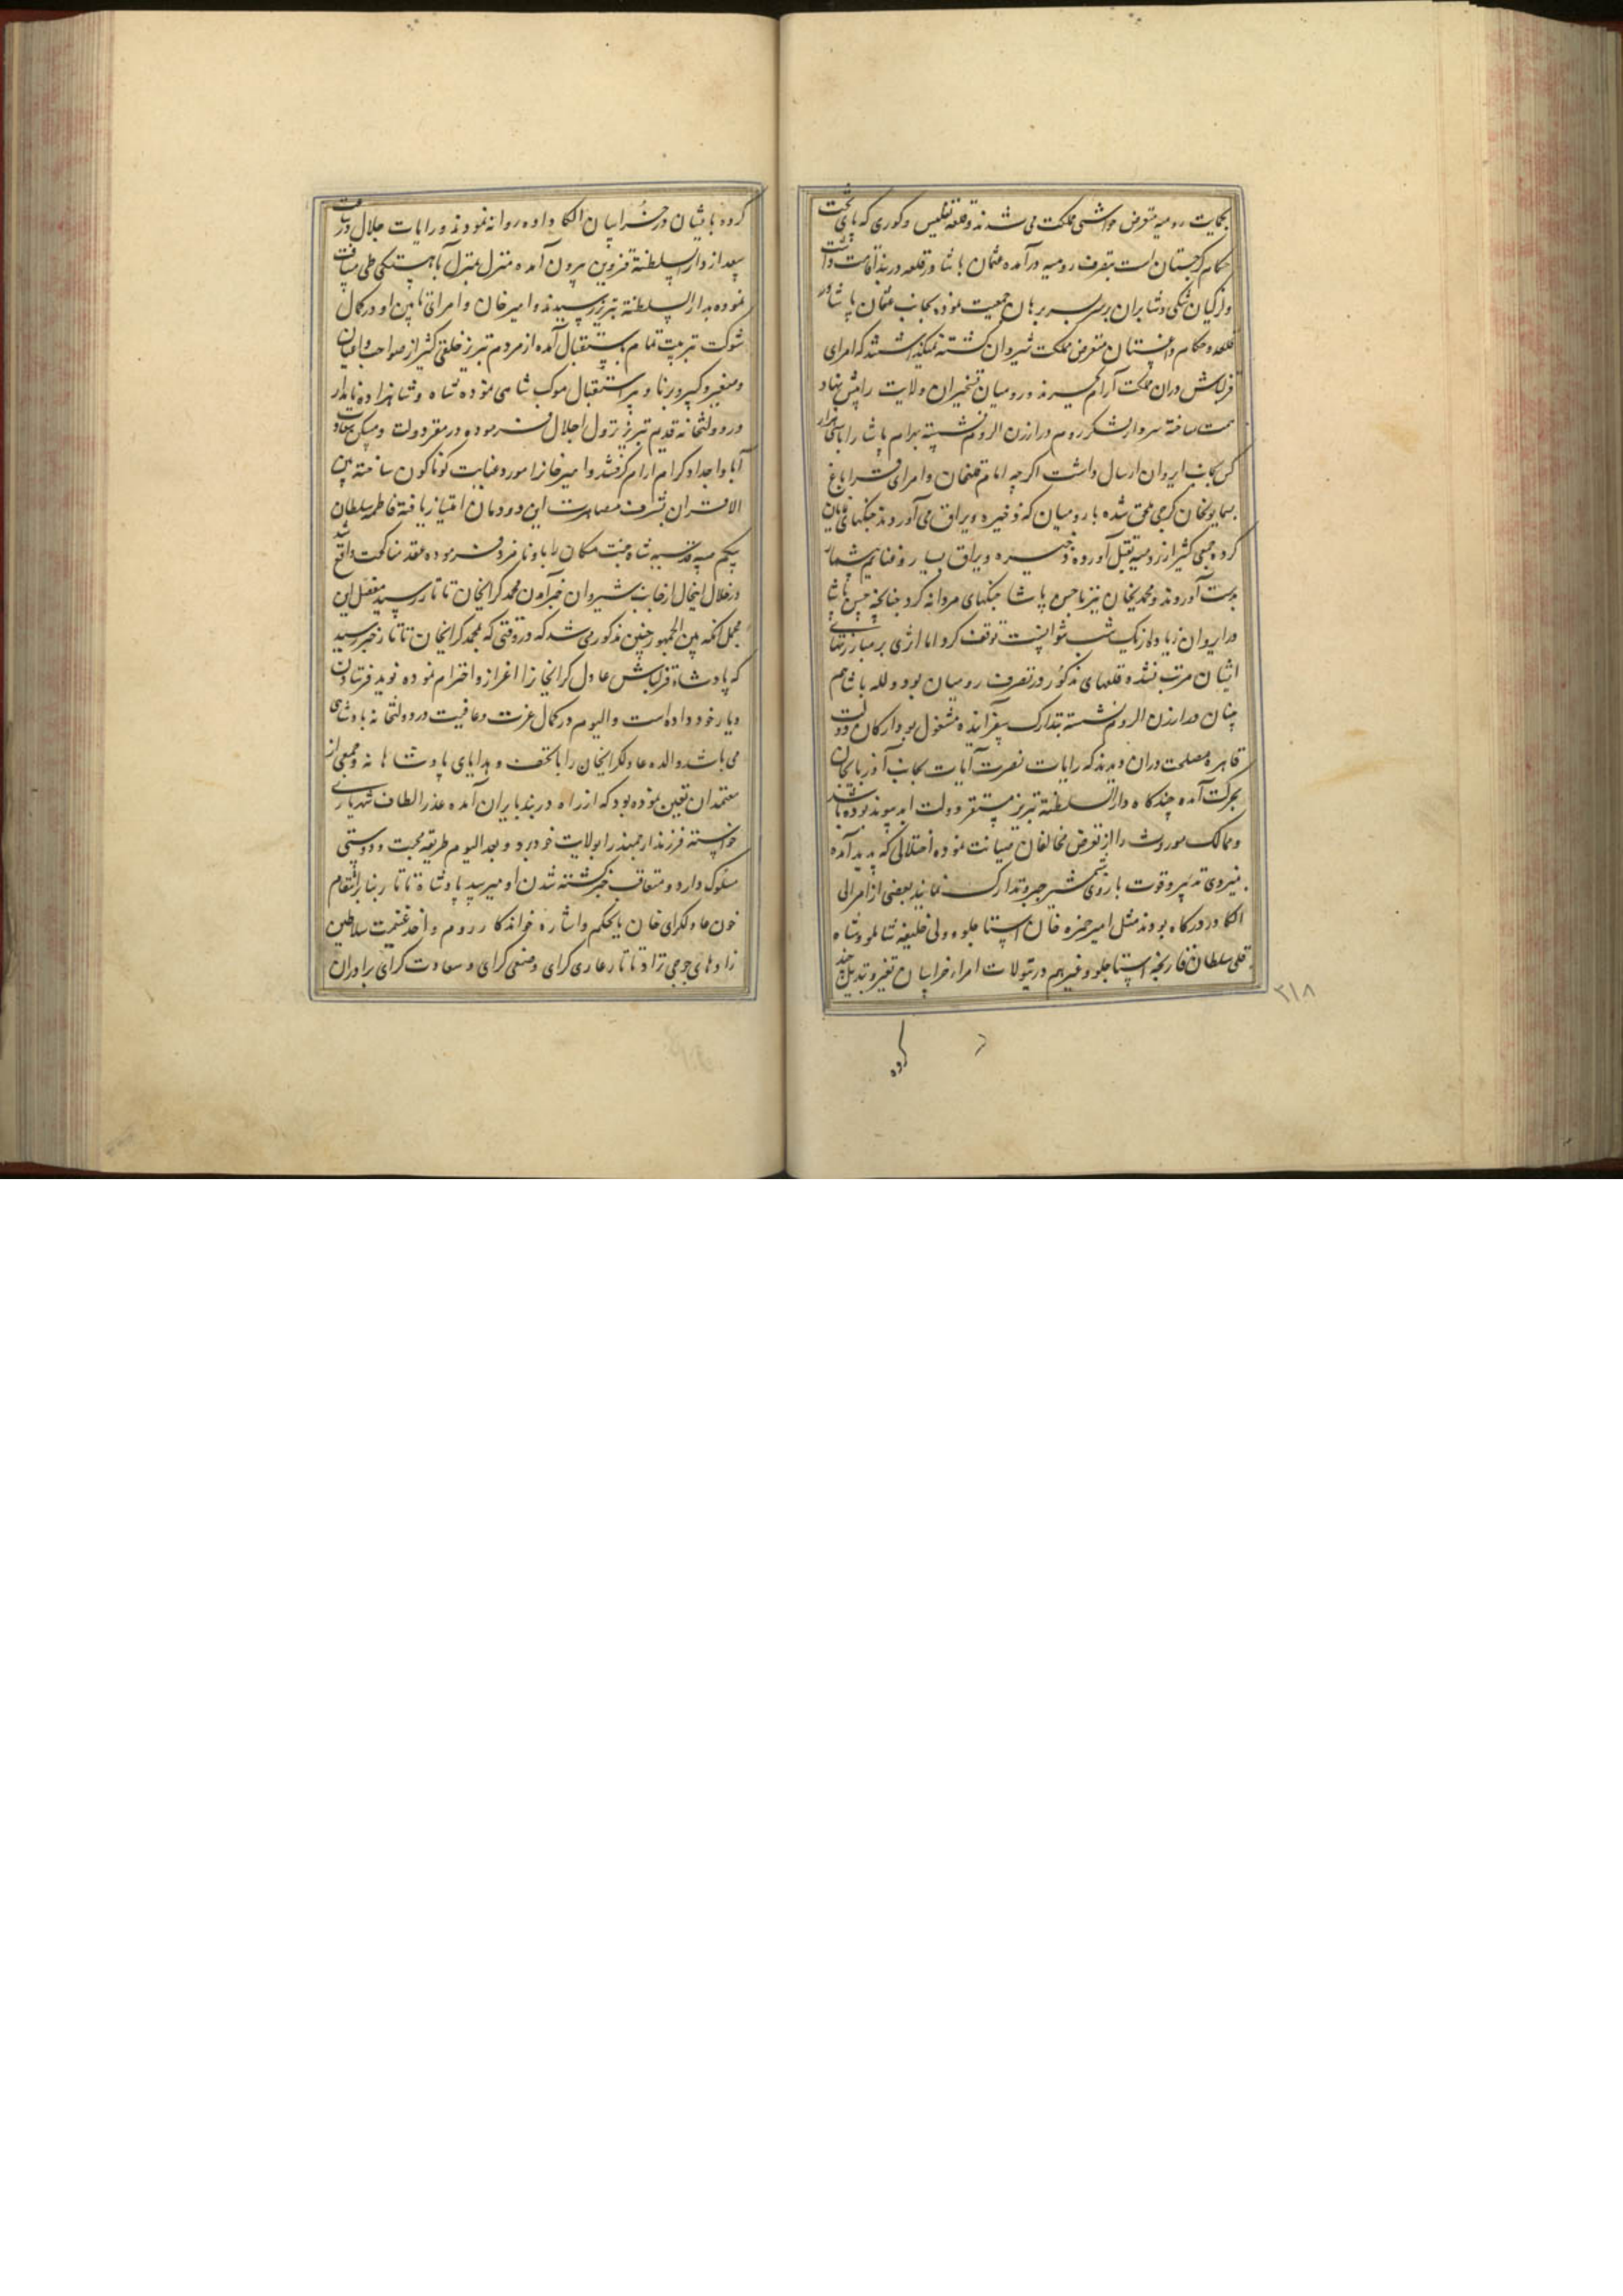 بحمایت رومیه متعرض حواشی مملکت می شدند و قلعه تفلیس و کوری که پای تخت
حکام گرجستان است بتصرف رومیه درآمده عثمان پاشا در قلعه دربند اقامت داشت
و لزکیان شکی و شابران بر سر برهان جمعیت نموده بجانب عثمان پاشا در
قلعه و حکام داغستان متعرض مملکت شیروان گشته نمیگذاشتند که امرای
قزلباش دران مملکت آرام گیرند و رومیان تسخیر ان ولایت را پیش نهاد
همت ساخته سردار لشکر روم در ارزن الروم نشسته بهرام پاشا را با هزار
کس بجانب ایروان ارسال داشت اگرچه امام قلیخان و امرای قراباغ
بسمایونخان کرجی ملحق شده با رومیان که ذخیره و یراق می آوردند جنگهای نمایان
کرده جمعی کثیر از رومیه بقتل آورده ذخیره و یراق بسیار و غنایم بیشمار
بدست آوردند و محمدیخان نیز با حسن پاشا جنگهای مردانه کرد چنانچه حسن پاشا
در ایروان زیاده از یک شب نتوانست توقف کرد اما اثری بر مبارزتهای
ایشان مرتب نشده قلعهای مذکور در تصرف رومیان بود و لله پاشا هم
چنان در ارزن الروم نشسته بتدارک سفر آینده مشغول بود ارکان دولت
قاهره مصلحت دران دیدند که رایات نصرت آیات بجانب آذربایجان
بحرکت آمده چند گاه دارالسلطنه تبریز مستقر دولت ابد پیوند بوده باشد
و ممالک موروث را از تعرض مخالفان صیانت نموده اختلالی که پدید آمده
بنیروی تدبیر و قوت بازوی شمشیر جبر و تدارک نمایند بعضی از امرا لی
الکا در درگاه بودند مثل امیر حمزه خان استاجلو و ولی خلیفه شاملو و شاه
قلی سلطان قارنجه استاجلو و غیرهم در تیولات امراء خراسان تغیر و تبدیل چند
۳۱۸
کرده
کرده بایشان در خراسان الکا داده روانه نمودند و رایات جلال
بعد از دارالسلطنة قزوین بیرون آمده منزل بمنزل بآهستگی طی مسافت
نموده بدارالسلطنة تبریز رسیدند و امیرخان و امرای تابین او در کمال
شوکت تربیت تمام باستقبال آمده از مردم تبریز خلقی کثیر از صواحب و اعیان
و صغیر و کبیر و برنا و پیر استقبال موکب شاهی نموده شاه و شاهزاده نامدار
در دولتخانه قدیم تبریز نزول اجلال فرموده در مقر دولت و مسکن سعادت
آبا و اجداد کرام آرام گرفتند و امیرخانرا مورد عنایت گوناگون ساخته بین
الاقران بشرف مصاهرت این دودمان امتیاز یافته فاطمه سلطان
بیگم صبیه قدسیه شاه جنت مکان را باو نامزد فرموده عقد مناکحت واقع شد
در خلال اینحال از جانب شیروان خبر آمدن محمد کرایخان تاتار رسید مفصل این
مجمل آنکه بین الجمهور چنین مذکور می شد که در وقتی که بمحمد کرایخان تاتار خبر رسید
که پادشاه قزلباش عادل کرایخانرا اعزاز و احترام نموده نوید فرستادن
دیار خود داده است و الیوم در کمال عزت و عافیت در دولتخانه پادشاهی
می باشد والده عادلکرایخان را با تحف و هدایای پادشاهانه و جمعی از
معتمدان تعیین نموده بود که از راه دربند بایران آمده عذر الطاف شهریاری
خواسته فرزند ارجمند را بولایت خود برد و بعد الیوم طریقه محبت و دوستی
مسلوک دارد و متعاقب خبر کشته شدن او میرسد پادشاه تاتار بنا بر انتقام
خون عادلکرای خان یا بحکم و اشاره خواندکار روم و اخذ غنیمت سلاطین
زادهای جوجی نژاد تاتار غازی کرای و صفی کرای و سعادت کرای برادران